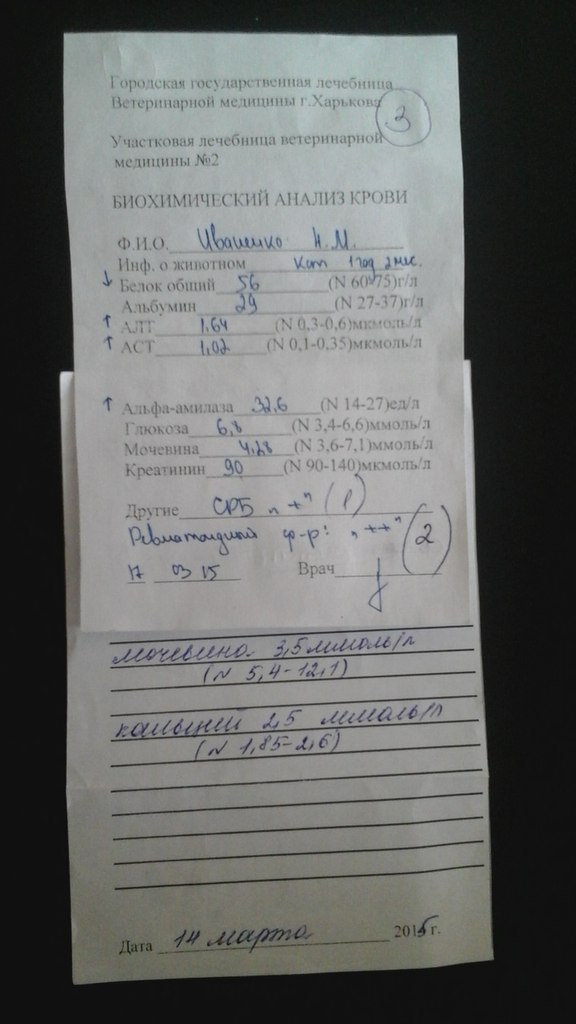 Городская государственная лечебница
Ветеринарной медицины г.Харькова
3
Участковая лечебница ветеринарной
медицины №2
БИОХИМИЧЕСКИЙ АНАЛИЗ КРОВИ
Ф.И.О. Иваненко Н.М.
Инф. о животном Кот 1 год 2 мес.
↓ Белок общий 56 (N 60-75)г/л
Альбумин 29 (N 27-37)г/л
↑ АЛТ 1,64 (N 0,3-0,6)мкмоль/л
↑ АСТ 1,02 (N 0,1-0,35)мкмоль/л
↑ Альфа-амилаза 32,6 (N 14-27)ед/л
Глюкоза 6,8 (N 3,4-6,6)ммоль/л
Мочевина 4,28 (N 3,6-7,1)ммоль/л
Креатинин 90 (N 90-140)мкмоль/л
Другие СРБ „+" (1)
Ревматоидный ф-р: „++" (2)
17 03 15 Врач
мочевина 3,5 ммоль/л
(N 5,4-12,1)
кальций 2,5 ммоль/л
(N 1,85-2,6)
Дата 14 марта 2015г.